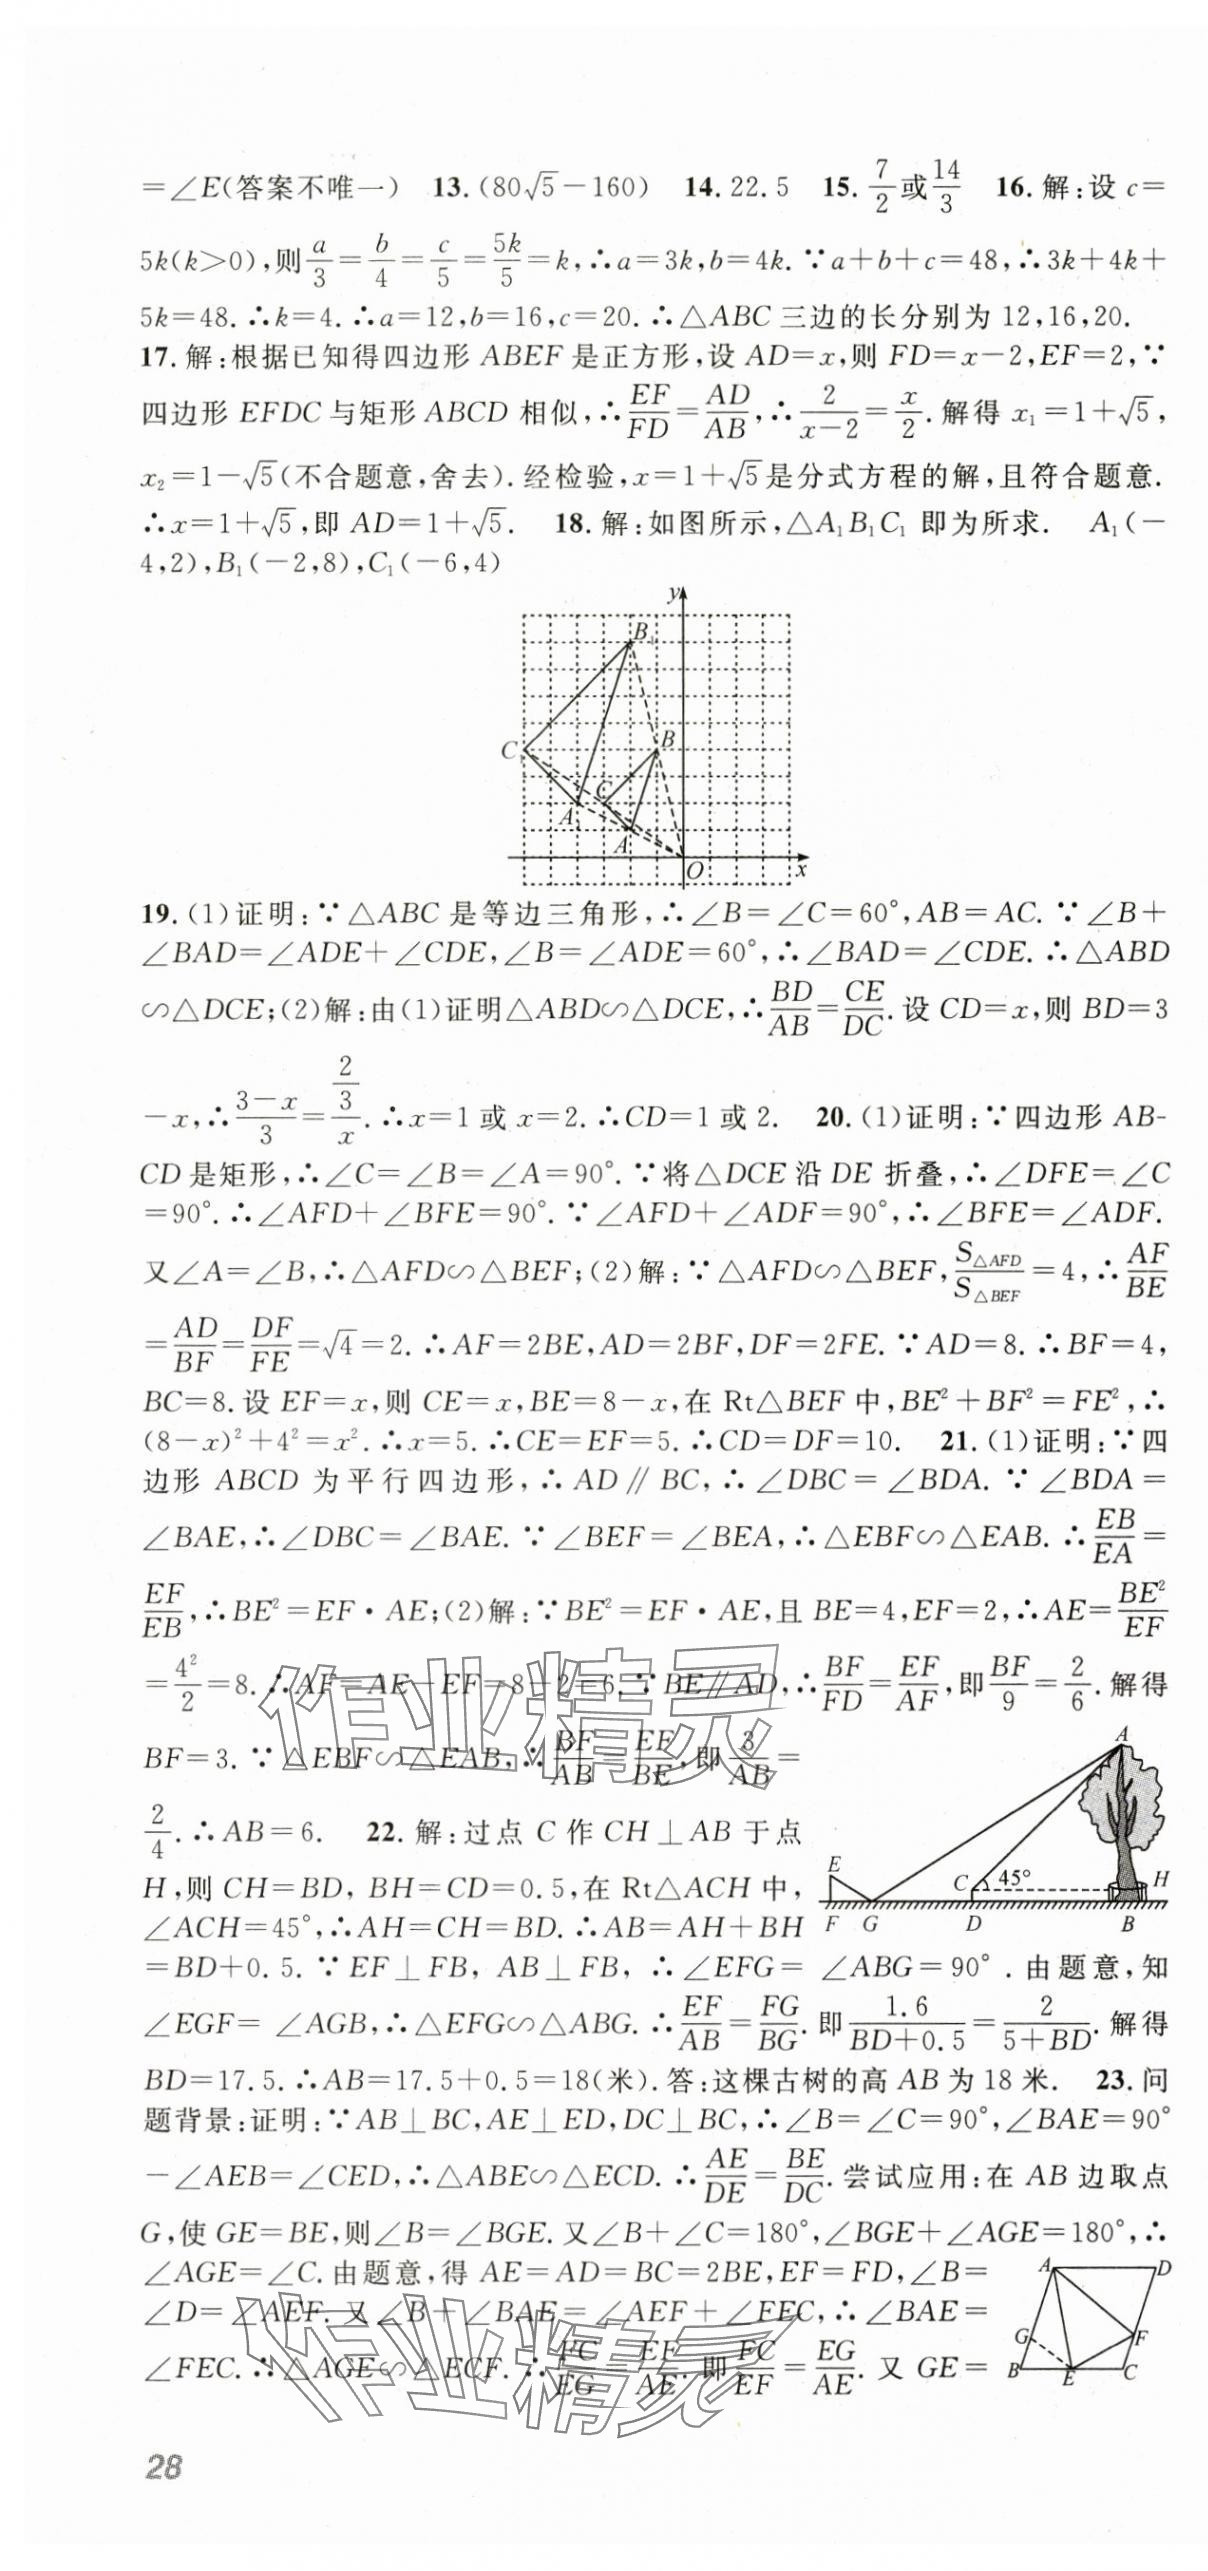 =∠E(答案不唯一)　13.(80√5-160)　14.22.5　15.7/2或14/3　16.解:设 c=
5k(k>0),则a/3=b/4=c/5=5k/5=k,∴a=3k,b=4k.∵a+b+c=48,∴3k+4k+
5k=48.∴k=4.∴a=12,b=16,c=20.∴△ABC三边的长分别为12,16,20.
17.解:根据已知得四边形ABEF是正方形,设AD=x,则FD=x-2,EF=2,∵
四边形EFDC与矩形ABCD相似,∴EF/FD=AD/AB,∴2/(x-2)=x/2.解得x₁=1+√5,
x₂=1-√5(不合题意,舍去).经检验,x=1+√5是分式方程的解,且符合题意.
∴x=1+√5,即AD=1+√5.　18.解:如图所示,△A₁B₁C₁即为所求.　A₁(-
4,2),B₁(-2,8),C₁(-6,4)
y
B₁
C₁
B
C
A₁
A
O
x
19.(1)证明:∵△ABC是等边三角形,∴∠B=∠C=60°,AB=AC.∵∠B+
∠BAD=∠ADE+∠CDE,∠B=∠ADE=60°,∴∠BAD=∠CDE.∴△ABD
∽△DCE;(2)解:由(1)证明△ABD∽△DCE,∴BD/AB=CE/DC.设CD=x,则BD=3
-x,∴(3-x)/3=(2/3)/x.∴x=1或x=2.∴CD=1或2.　20.(1)证明:∵四边形AB-
CD是矩形,∴∠C=∠B=∠A=90°.∵将△DCE沿DE折叠,∴∠DFE=∠C
=90°.∴∠AFD+∠BFE=90°.∵∠AFD+∠ADF=90°,∴∠BFE=∠ADF.
又∠A=∠B,∴△AFD∽△BEF;(2)解:∵△AFD∽△BEF,S△AFD/S△BEF=4,∴AF/BE
=AD/BF=DF/FE=√4=2.∴AF=2BE,AD=2BF,DF=2FE.∵AD=8.∴BF=4,
BC=8.设EF=x,则CE=x,BE=8-x,在Rt△BEF中,BE²+BF²=FE²,∴
(8-x)²+4²=x².∴x=5.∴CE=EF=5.∴CD=DF=10.　21.(1)证明:∵四
边形ABCD为平行四边形,∴AD∥BC,∴∠DBC=∠BDA.∵∠BDA=
∠BAE,∴∠DBC=∠BAE.∵∠BEF=∠BEA,∴△EBF∽△EAB.∴EB/EA=
EF/EB,∴BE²=EF·AE;(2)解:∵BE²=EF·AE,且BE=4,EF=2,∴AE=BE²/EF
=4²/2=8.∴AF=AE-EF=8-2=6.∵BE∥AD,∴BF/FD=EF/AF,即BF/9=2/6.解得
BF=3.∵△EBF∽△EAB,∴BF/AB=EF/BE,即3/AB=
2/4.∴AB=6.　22.解:过点C作CH⊥AB于点
H,则CH=BD,BH=CD=0.5,在Rt△ACH中,
∠ACH=45°,∴AH=CH=BD.∴AB=AH+BH
A
E
C
45°
H
F G D B
=BD+0.5.∵EF⊥FB,AB⊥FB,∴∠EFG=∠ABG=90°.由题意,知
∠EGF=∠AGB,∴△EFG∽△ABG.∴EF/AB=FG/BG.即1.6/(BD+0.5)=2/(5+BD).解得
BD=17.5.∴AB=17.5+0.5=18(米).答:这棵古树的高AB为18米.　23.问
题背景:证明:∵AB⊥BC,AE⊥ED,DC⊥BC,∴∠B=∠C=90°,∠BAE=90°
-∠AEB=∠CED,∴△ABE∽△ECD.∴AE/DE=BE/DC.尝试应用:在AB边取点
G,使GE=BE,则∠B=∠BGE.又∠B+∠C=180°,∠BGE+∠AGE=180°,∴
∠AGE=∠C.由题意,得AE=AD=BC=2BE,EF=FD,∠B=
∠D=∠AEF.又∠B+∠BAE=∠AEF+∠FEC,∴∠BAE=
∠FEC.∴△AGE∽△ECF.∴FC/EG=EF/AE.即FC/EF=EG/AE.又GE=
A D
G F
B E C
作业精灵
作业精灵
28